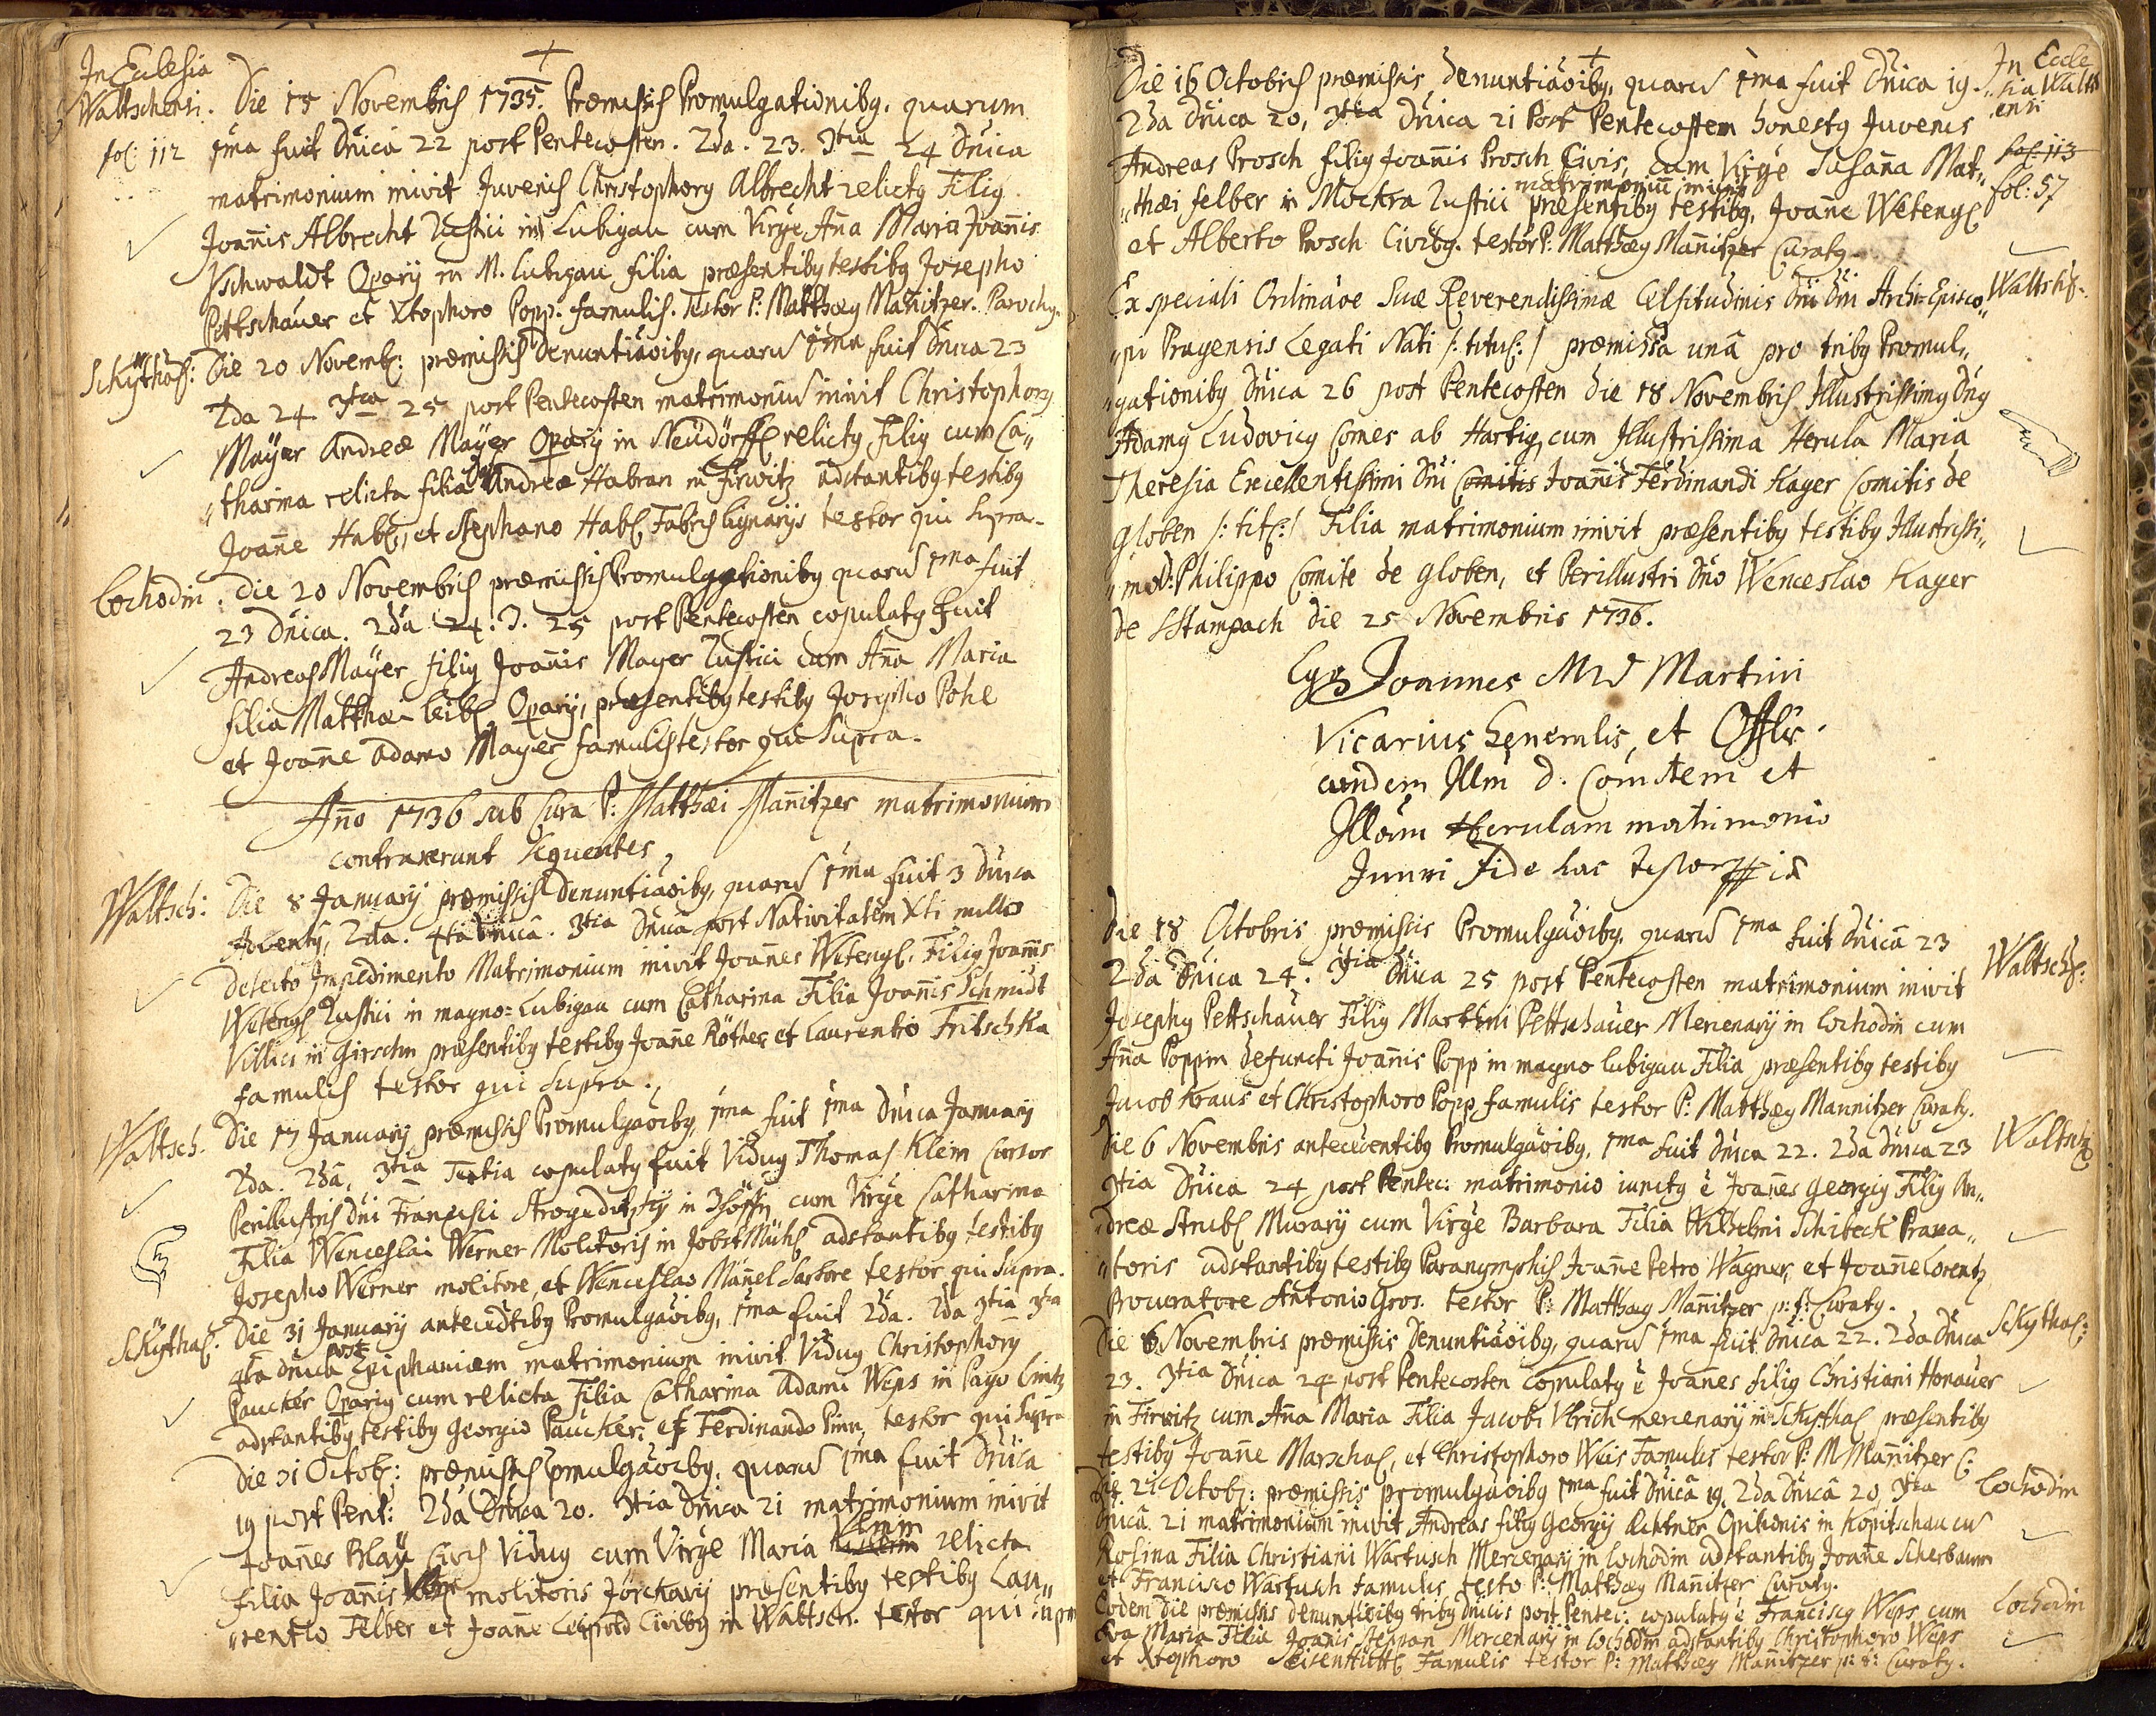 In Ecclesia
Waltschensi. Die 15 Novembris 1735. Præmissis Promulgationibq. quarum
fol: 112 1ma fuit Dnica 22 post Pentecosten. 2da. 23. 3tia 24 Dnica
matrimonium inivit Juvenis Christophorq Albrecht relictq Filiq
Joannis Albrecht Rustici in Lubigau cum Virge Ana Maria Joannis
Opary in M. Lubigau filia præsentibq testibq Josepho
Pettschauer et Xtophoro Popp. famulis. Testor P: Matthæq Manitzer. Parochq.
Skythal: Die 20 Novemb: præmissis Denuntiaoibq, quaru 1ma fuit Dnica 23
2da 24 3tia 25 post Pentecosten matrimoniu inivit Christophorq
Mayer Andreæ Mayer Opary in Neudörffl relictq Filiq cum Ca„
„tharina relicta filia Andreæ Habran in Firwitz adstantibq testibq
Joane Habl, et Stephano Habl Fabris lignarys testor qui supra.
Lochodin: Die 20 Novembris præmissis Promulgationibq quaru 1ma fuit
23 Dnica. 2da 24. 3. 25 post Pentecosten copulatq fuit
Andreas Mayer filiq Joannis Mayer Rustici cum Ana Maria
filia Matthæi Leibl Opary, præsentibq testibq Josepho Pohl
et Joane Adamo Mayer famulis testor qui supra.
Año 1736 sub Cura P: Matthæi Manitzer matrimonium
contraxerunt sequentes
Waltsch: Die 8 January præmissis Denuntiaoibq, quaru 1ma fuit 3 Dnica
Adventq, 2da. 4ta Dnica. 3tia Dnica post Nativitatem Xti nullo
detecto Impedimento Matrimonium inivit Joannes Wetengl. Filiq Joannis
Wetengl Rustici in magno=Lubigau cum Catharina Filia Joannis Schmidt
Villici in Girschin præsentibq testibq Joane Röther et Laurentio Fritschka
famulis testor qui supra.
Waltsch. Die 17 January præmissis Promulgaoibq, 1ma fuit 1ma Dnica January
2da. 2da, 3tia Tertia copulatq fuit Viduq Thomas Klein Cursor
Perillustris Dni Francisci in cum Virge Catharina
Filia Wenceslai Werner Molitoris in Jobst Mühl adstantibq testibq
Josepho Werner molitore, et Wenceslao Mañel Sartore testor qui supra.
Skythal. Die 31 January antecedtibq Promulgaoibq, 1ma fuit 2da. 2da 3tia 3tia
4ta Dnica post Epiphaniam matrimonium inivit Viduq Christophorq
Paucker Oparq cum relicta Filia Catharina Adami Weps in Pago Lintz
adstantibq testibq Georgio Paucker, et Ferdinando Pinn, testor qui supra
Die 31 Octob: præmissis Promulgaoibq. quaru 1ma fuit Dnica
19 post Pent: 2da Dnica 20. 3tia Dnica 21 matrimonium inivit
Joañes Blay Civis Viduq cum Virge Maria relicta
filia Joannis molitoris præsentibq testibq Lau„
„rentio Felber et Joane Leupold Civibq in Waltsch. testor qui supra
Die 16 Octobris præmissis Denuntiaoibq, quaru 1ma fuit Dnica 19. In Eccle„
2da Dnica 20, 3tia Dnica 21 Post Pentecostem honestq Juvenis „sia Waltsch
ensi
Andreas Prosch filiq Joannis Prosch Civis, cum Virge Susaña Mat„ fol: 113
matrimoniu inivit
„thæi Felber in Mockra Rustici præsentibq testibq, Joane Wetengl fol: 57
et Alberto Prosch Civibq. testor P: Matthæq Manitzer Curatq.
Ex speciali Ordinaoe Suæ Reverendissimæ Celsitudinis Dni Dni Archi-Episco„ Waltsch.
„pi Pragensis Legati Nati /: titul: / præmissa una pro tribq Promul„
„gationibq Dnica 26 post Pentecosten die 18 Novembris Illustrissimq Dnq
Adamq Ludovicq Comes ab Hartig, cum Illustrissima Herula Maria
Theresia Excellentissimi Dni Comitis Joannis Ferdinandi Kager Comitis de
Globen /: titl: / Filia matrimonium inivit præsentibq testibq Illustrissi„
„mo D: Philippo Comite de Globen, et Perillustri Dno Wenceslao Kager
de Stampach die 25 Novembris 1736.
Ego Joannes Martini
Vicarius Generalis, et Offlis
eundem Illm D. Comitem et
Illam Herulam matrimonio
Junxi fide hac testor
Die 18 Octobris præmissis Promulgaoibq. quaru 1ma fuit Dnica 23
2da Dnica 24. 3tia Dnica 25 post Pentecosten matrimonium inivit Waltsch:
Josephq Pettschauer Filiq Martini Pettschauer Mercenary in Lochodin cum
Aña Poppin defuncti Joannis Popp in magno Lubigau Filia præsentibq testibq
Jacob Kraus et Christophoro Popp famulis testor P: Matthæq Mannitzer Curatq.
Die 6 Novembris antecedentibq Promulgaoibq. 1ma fuit Dnica 22. 2da Dnica 23 Waltsch
3tia Dnica 24 post Pentec: matrimonio iunctq e Joañes Georgiq Filiq An„
„dreæ Strubl Murary cum Virge Barbara Filia Wilhelmi Schibeck Braxa„
„toris adstantibq testibq Paranymphis Joane Petro Wagner, et Joañe Lorentz
Procuratore Antonio Gros. testor P: Matthæq Manitzer p:t: Curatq.
Die 6 Novembris præmissis Denuntiaoibq, quaru 1ma fuit Dnica 22. 2da Dnica Skythal:
23. 3tia Dnica 24 post Pentecosten copulatq e Joañes filiq Christiani Honauer
in Firwitz cum Aña Maria Filia Jacobi Ulrich mercenary in Skythal præsentibq
testibq Joañe Marschal, et Christophoro Weis Famulis testor P: M Mañitzer C:
Die 21 Octob: præmissis promulgaoibq 1ma fuit Dnica 19. 2da Dnica 20 3tia Lochodin
Dnica 21 matrimonium inivit Andreas filiq Georgy Opilionis in Kopitschau cu
Rosina Filia Christiani Wartusch Mercenary in Lochodin adstantibq Joañe Scherbaum
et Francisco Wartusch famulis testo P: Matthæq Mañitzer Curatq.
Eodem die præmissis denuntiaoibq tribq Dnicis post Pentec: copulatq e Franciscq Weps cum Lochodin
Eva Maria Filia Joanis Stephan Mercenary in Lochodin adstantibq Christophoro Weps
et Xtophoro Famulis testor P: Matthæq Mañitzer p:t: Curatq.